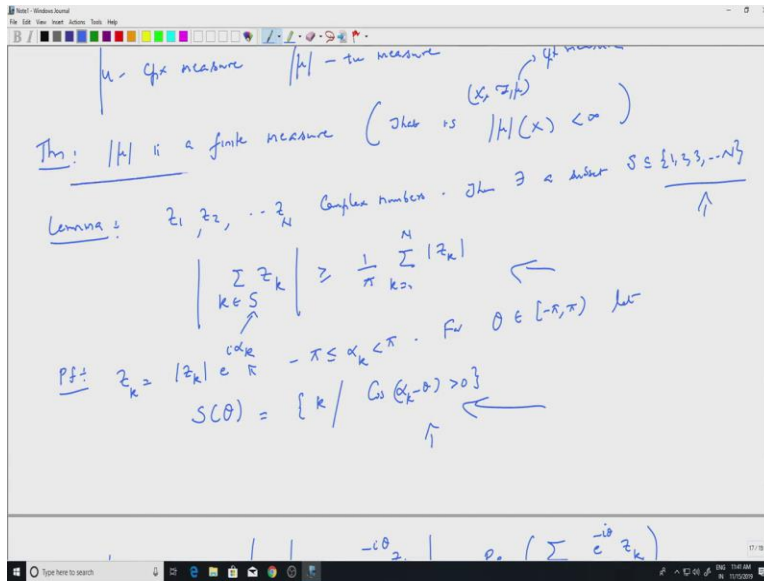 Note1 - Windows Journal
File Edit View Insert Actions Tools Help
μ - cpx measure |μ| - tve measure
(X, F, μ) → cpx measure
Thm: |μ| is a finite measure (That is |μ|(X) < ∞)
Lemma: z₁, z₂, ... z_N Complex numbers. Then ∃ a subset S ⊆ {1,2,3,...N}
|∑_{k∈S} z_k| ≥ 1/π ∑_{k=1}^{N} |z_k|
Pf: z_k = |z_k| e^{iα_k} -π ≤ α_k < π. For θ ∈ [-π, π) let
S(θ) = {k / Cos(α_k-θ) > 0}
e^{-iθ} z_k | Re (∑ e^{-iθ} z_k)
17/18
Type here to search
ENG 11:41 AM
IN 11/15/2019